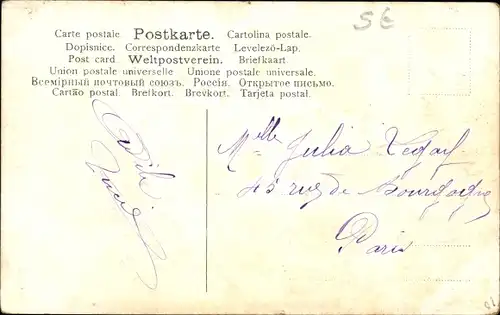 5€
Carte postale. Postkarte. Cartolina postale.
Dopisnice. Correspondenzkarte Levelező-Lap.
Post card Weltpostverein. Briefkaart.
Union postale universelle Unione postale universale.
Всемірный почтовый союзъ. Россія. Открытое письмо.
Cartão postal. Brefkort. Brevkort. Tarjeta postal.
Melle Julia
45 rue de Bourgogne
Paris